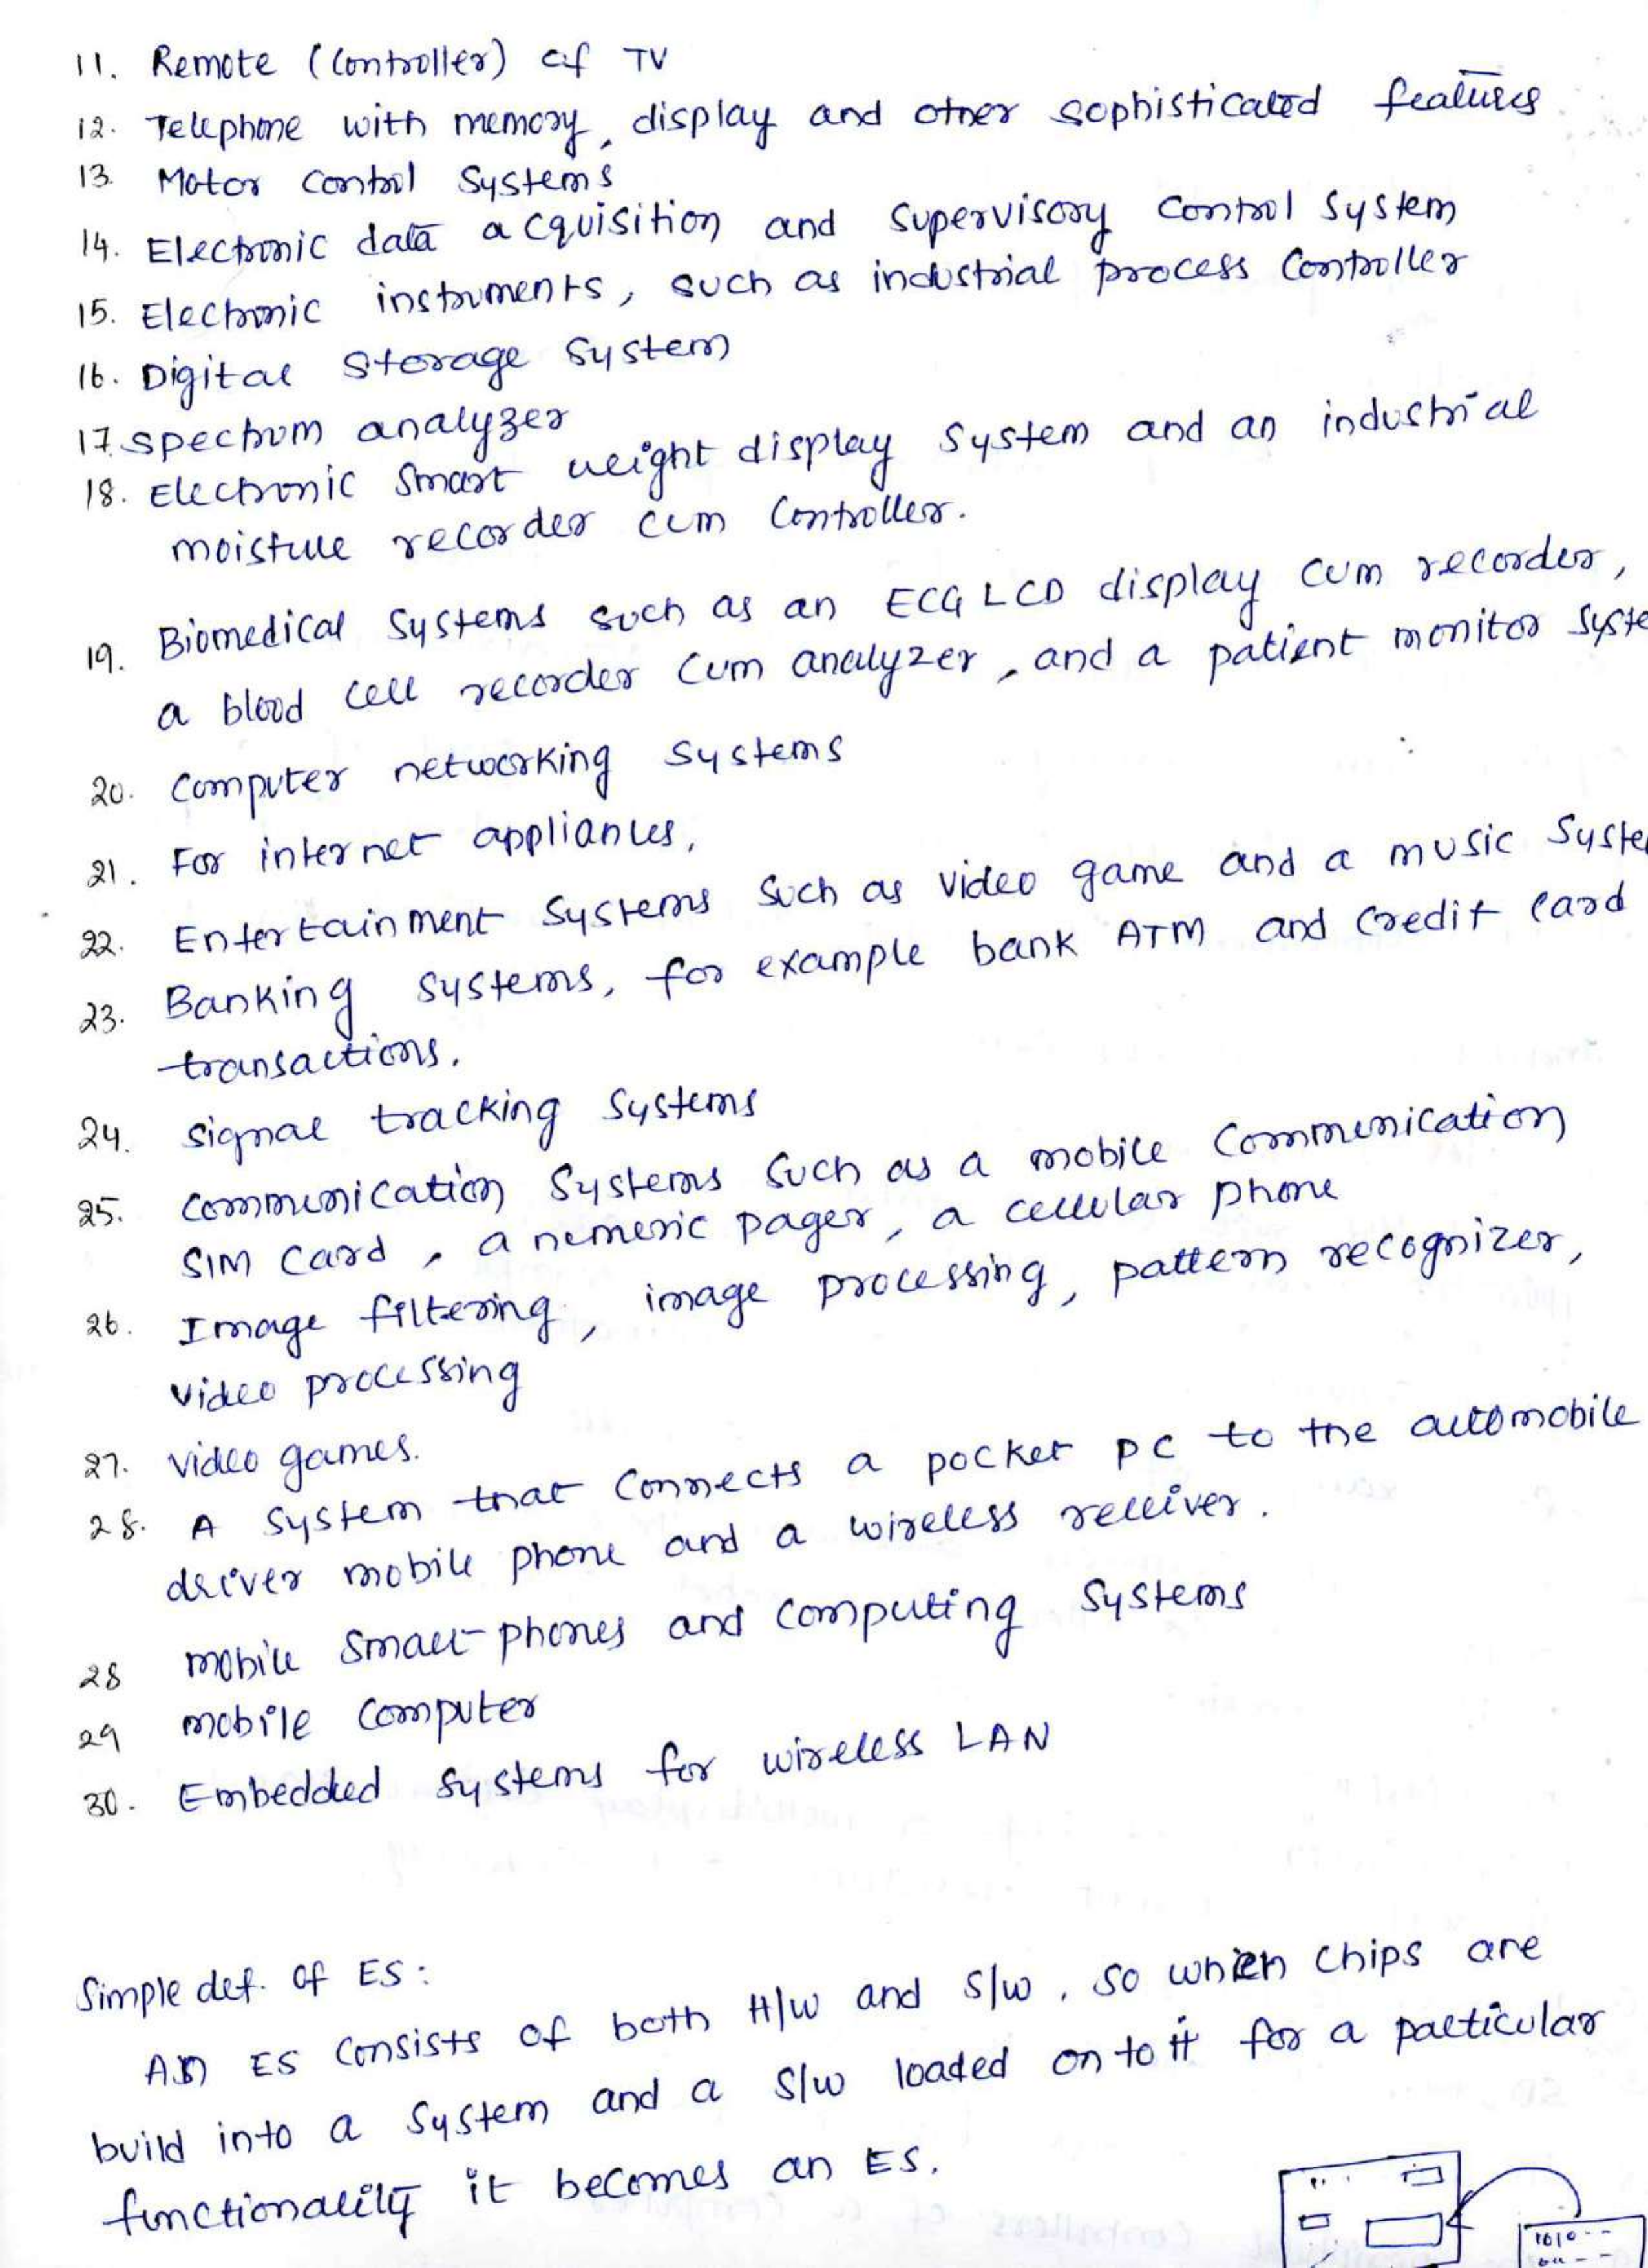 11. Remote (Controller) of TV
12. Telephone with memory, display and other sophisticated features
13. Motor Control Systems
14. Electronic data acquisition and Supervisory Control System
15. Electronic instruments, such as industrial process Controller
16. Digital Storage System
17. Spectrum analyzer
18. Electronic Smart weight display System and an industrial
moisture recorder cum Controller.
19. Biomedical Systems such as an ECG LCD display cum recorder,
a blood cell recorder Cum analyzer, and a patient monitor Syste
20. Computer networking Systems
21. For internet appliances,
22. Entertainment Systems Such as video game and a music Syste
23. Banking Systems, for example bank ATM and Credit Card
transactions.
24. Signal tracking Systems
25. Communication Systems Such as a mobile Communication
SIM Card, a numeric pager, a cellular phone
26. Image filtering, image processing, pattern recognizer,
video processing
27. Video games.
28. A System that Connects a pocket PC to the automobile
driver mobile phone and a wireless receiver.
28 mobile Smart phones and Computing Systems
29 mobile Computer
30. Embedded Systems for wireless LAN
Simple def. of ES:
An ES Consists of both H/w and S/w, so when Chips are
build into a System and a S/w loaded on to it for a particular
functionality it becomes an ES.
1010--